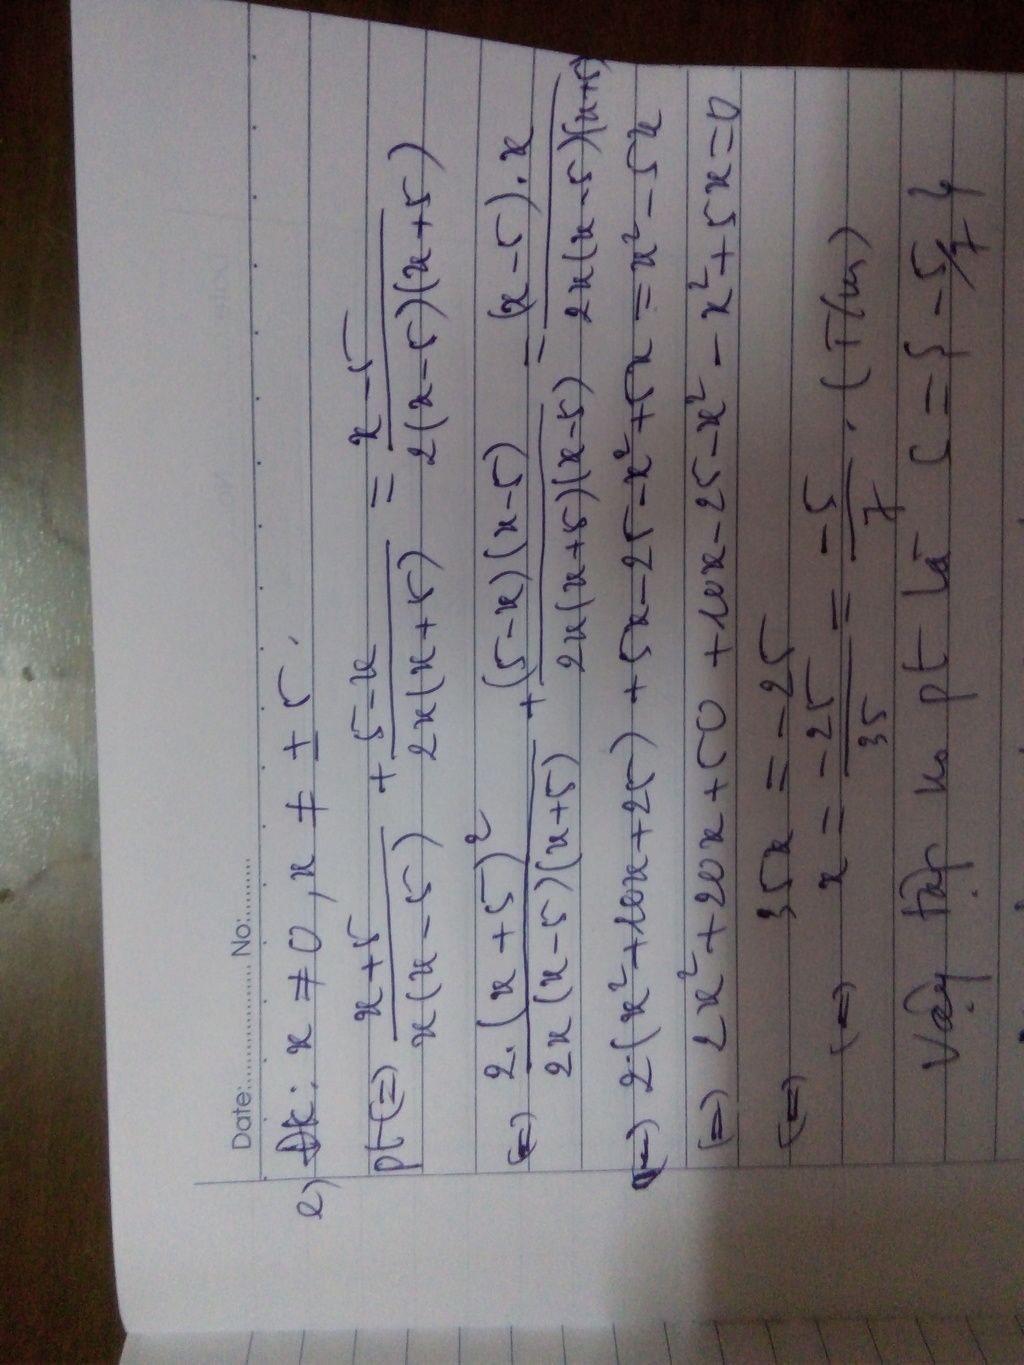 Date:................ No:...........
e) ĐK: x ≠ 0, x ≠ ± 5.
pt (=) \frac{x+5}{x(x-5)} + \frac{5-x}{2x(x+5)} = \frac{x-5}{2(x-5)(x+5)}
(=) \frac{2.(x+5)^2}{2x(x-5)(x+5)} + \frac{(5-x)(x-5)}{2x(x+5)(x-5)} = \frac{(x-5).x}{2x(x-5)(x+5)}
(=) 2.(x²+10x+25) + 5x-25-x²+5x = x²-5x
(=) 2x²+20x+50 +10x-25-x²-x²+5x=0
(=) 35x = -25
(=) x = \frac{-25}{35} = \frac{-5}{7}. (T/m)
Vậy tập no pt là S = {-5/7}